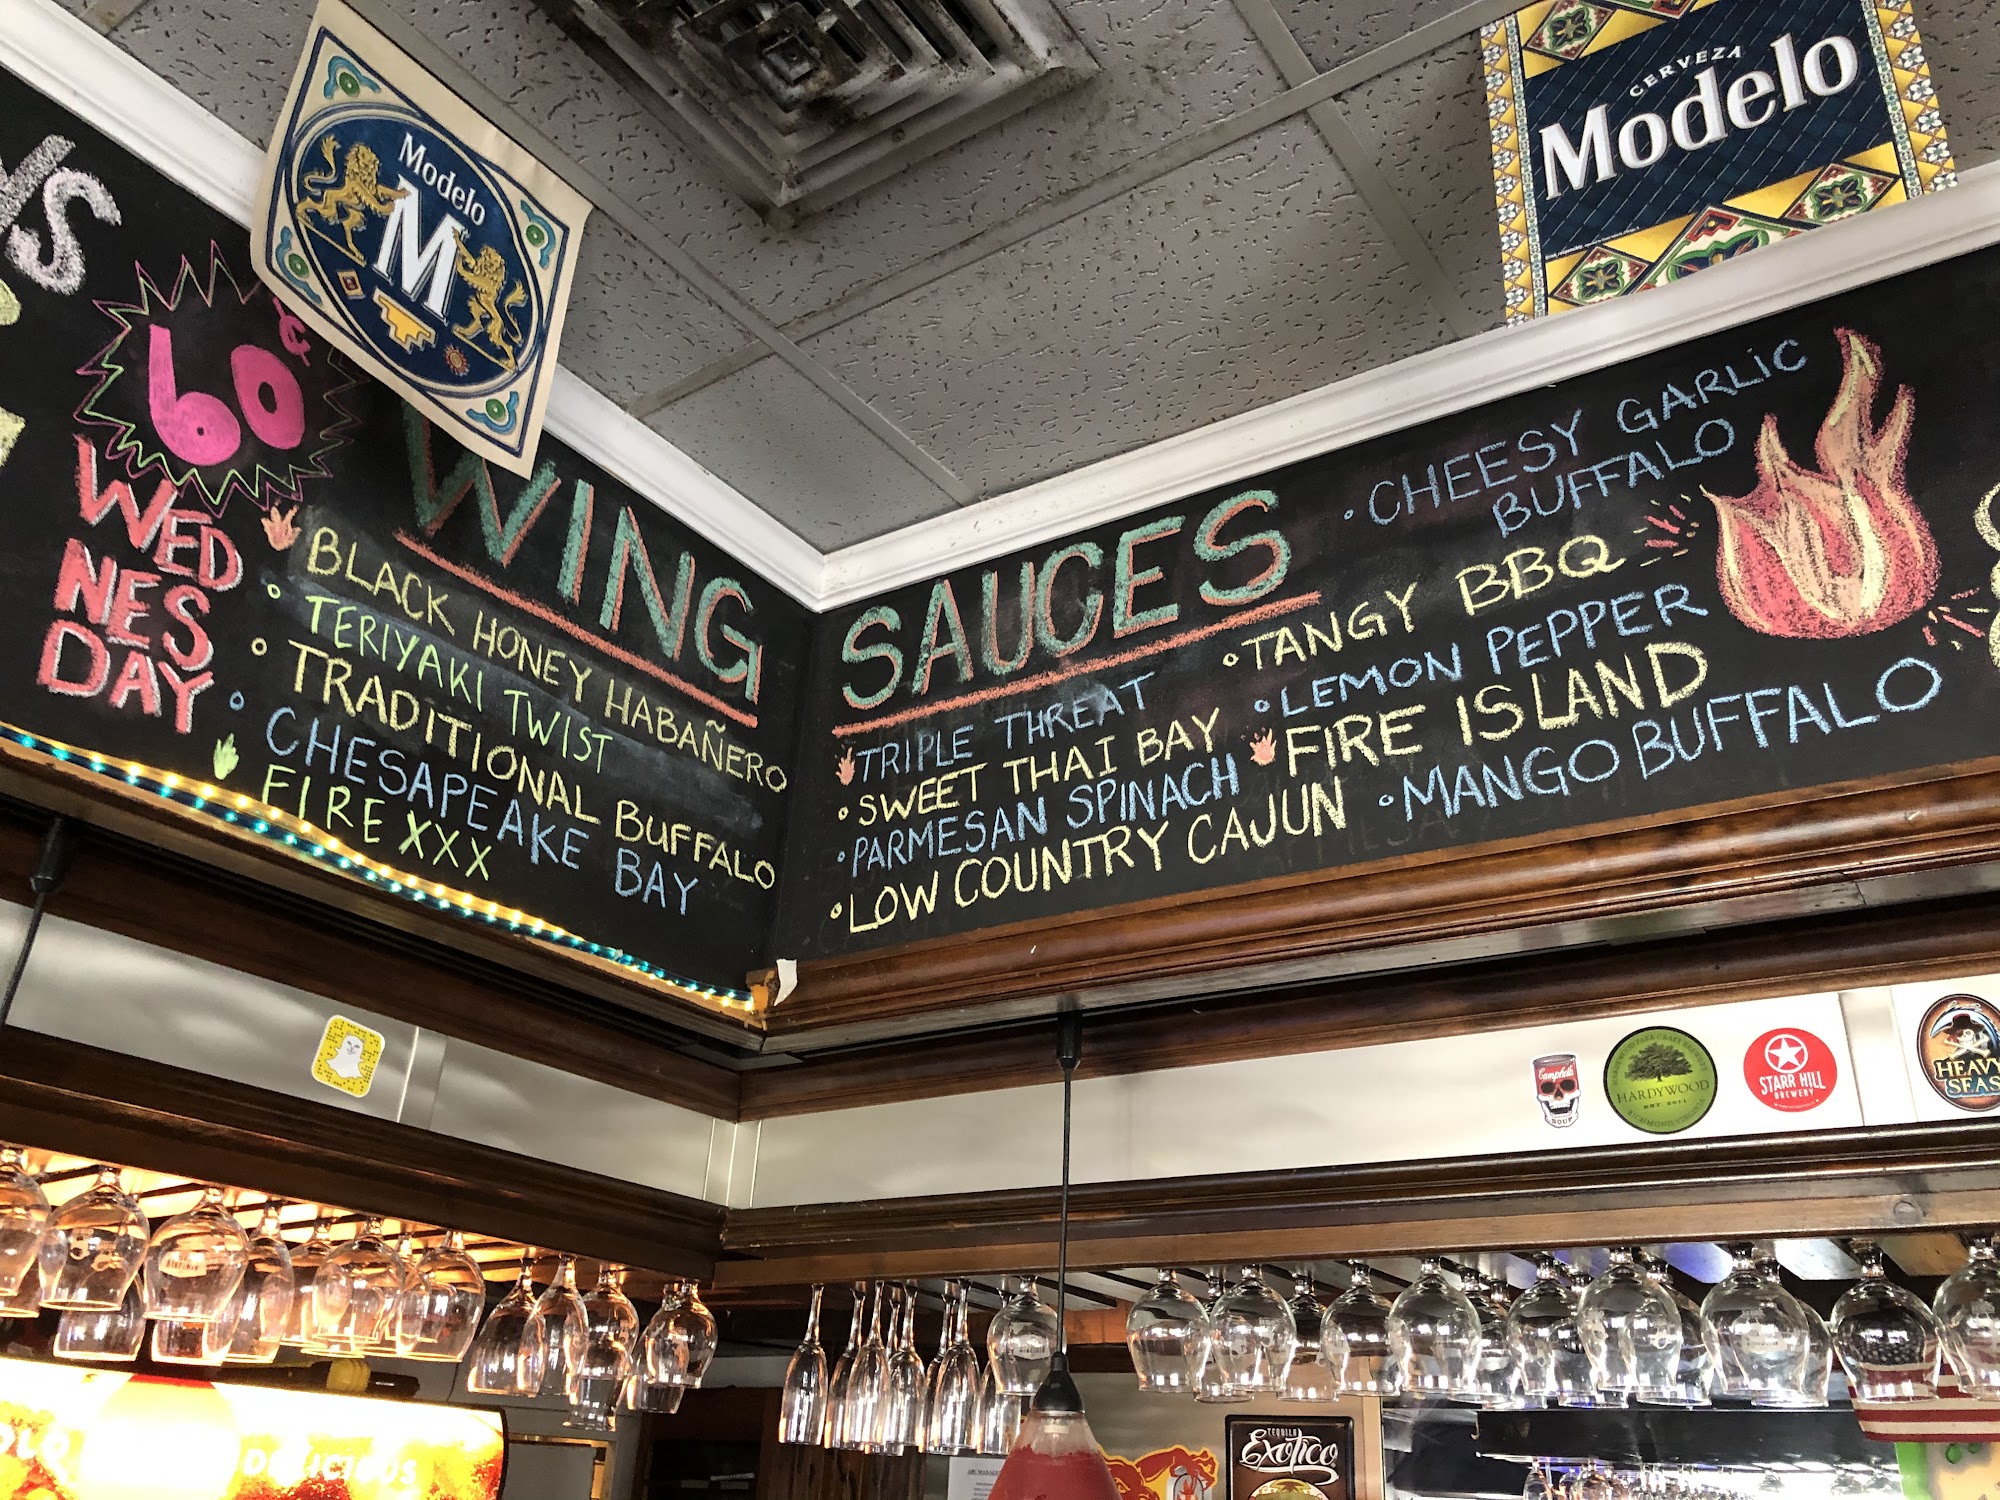 Modelo
M
CERVEZA
Modelo
60¢
WED
NES
DAY
WING SAUCES
BLACK HONEY HABAÑERO
• TERIYAKI TWIST
• TRADITIONAL BUFFALO
• CHESAPEAKE BAY
FIRE XXX
TRIPLE THREAT
• SWEET THAI BAY
• PARMESAN SPINACH
• LOW COUNTRY CAJUN
• CHEESY GARLIC
BUFFALO
• TANGY BBQ
• LEMON PEPPER
FIRE ISLAND
• MANGO BUFFALO
Campbell's
SOUP
HARDYWOOD
EST. 2011
RICHMOND, VIRGINIA
STARR HILL
BREWERY
HEAVY
SEAS
DELICIOUS
TEQUILA
Exotico